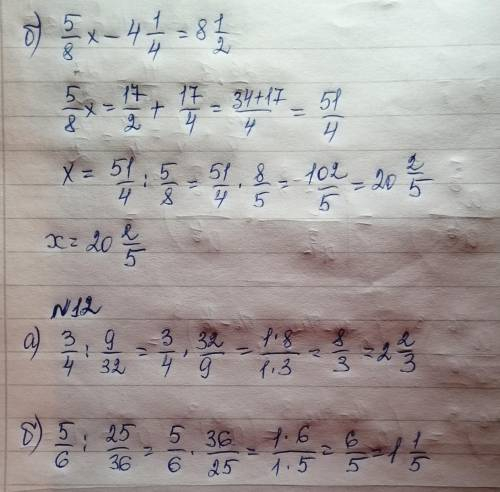 б) 5/8 x − 4 1/4 = 8 1/2
5/8 x = 17/2 + 17/4 = 34+17/4 = 51/4
x = 51/4 : 5/8 = 51/4 · 8/5 = 102/5 = 20 2/5
x = 20 2/5
№12
а) 3/4 : 9/32 = 3/4 · 32/9 = 1·8/1·3 = 8/3 = 2 2/3
б) 5/6 : 25/36 = 5/6 · 36/25 = 1·6/1·5 = 6/5 = 1 1/5